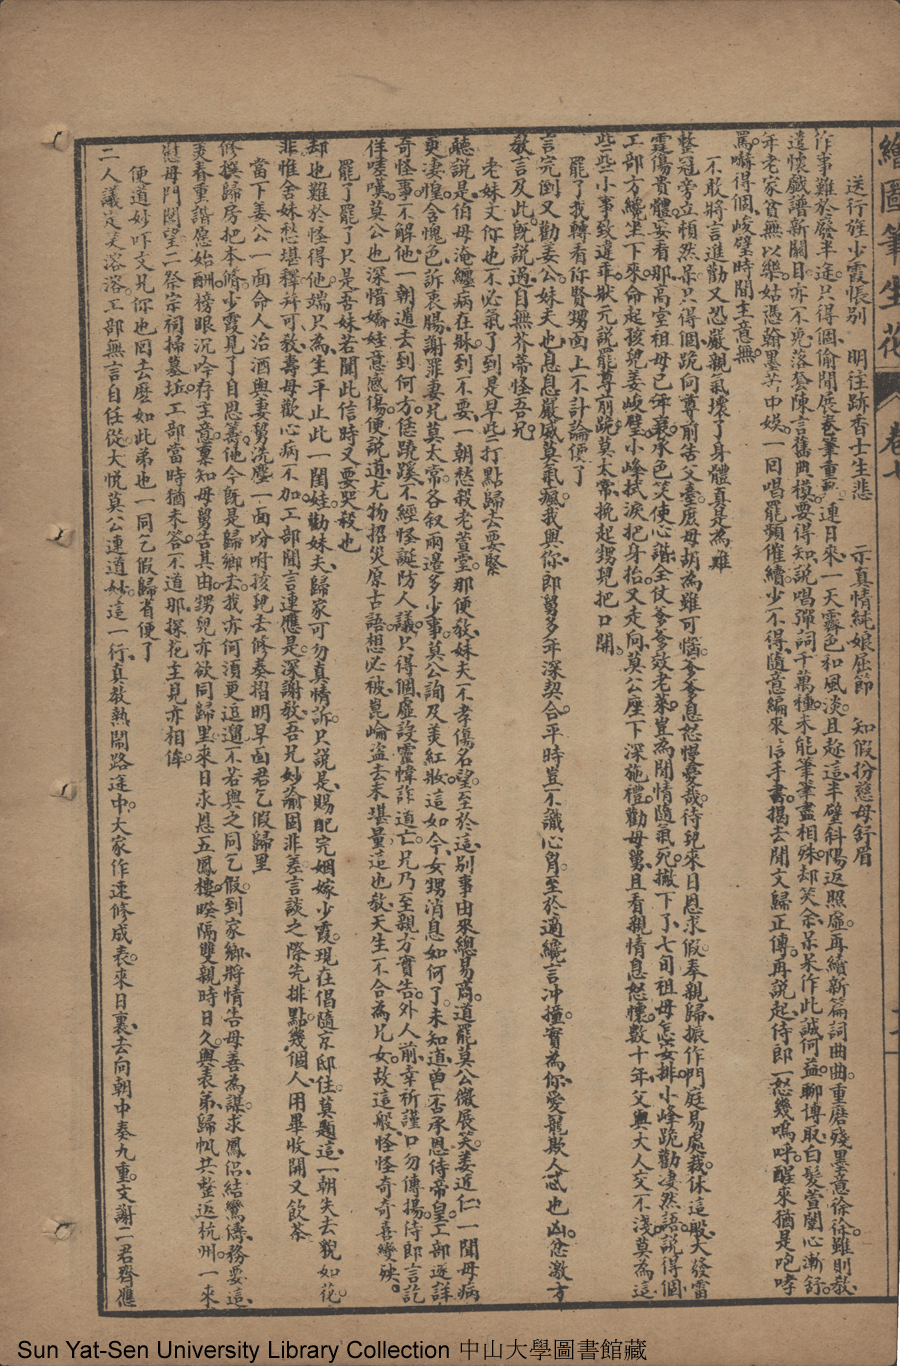 繪圖筆生花 卷七
送行旌少霞悵別 明往跡香士生悲 示真情純娘屈節 知假扮慈母舒眉
作事難於廢半途。只得個偷閒展卷筆重 。連日來一天霽色和風淡。且趁這半壁斜陽返照虛。再續新篇詞曲曲。重磨殘墨意徐徐。雖則教
遣懷戲譜新關目。亦不免落套陳言舊典模。要得知說唱彈詞千萬種。未能筆筆盡相殊。却笑余呆呆作此誠何益。聊博取白髮萱闈心漸舒。
年老家貧無以樂。姑憑翰墨苦中娛。一回唱罷頻催續。少不得隨意編來信手書。揭去閒文歸正傳。再說起侍郎一怒幾嗚呼。醒來猶是咆哮
罵。嚇得個峻璧時間主意無。
不敢將言進勸又恐嚴親氣壞了身體真是為難
整冠旁立悄然呆。只得個跪向尊前告父臺。庶母胡為雖可惱。爹爹息怒慢憂哉。待兒來日恩求假。奉親歸振作門庭易處裁。休這般大發雷
霆傷貴體。妄看那高堂祖母已年衰。承色笑使心諧。全仗爹爹效老萊。豈為閒情隨氣死。撇下了七旬祖母怎安排。小峰跪勸淒然語。說得個
工部方纔坐下來。命起孩兒姜峻璧。小峰拭淚把身抬。又走向莫公座下深施禮。勸母舅且看親情息怒懷。數十年父與大人交不淺。莫為這
些些小事致違乖。狀元說罷尊前跪。莫太常挽起甥兒把口開。
罷了我轉看你賢甥面上不計論便了
言完倒又勸姜公。妹夫也息息嚴威莫氣瘋。我與你郎舅多年深契合。平時豈不識心胸。至於適纔言沖撞。實為你愛寵欺人忒也凶。忿激方
教言及此。既說過自無芥蒂怪吾兄。
老妹丈你也不必氣了到是早些打點歸去要緊
聽說是伯母淹纏病在牀。到不要一朝愁殺老萱堂。那便教妹夫不孝傷名望。至於這別事由來總易商。道罷莫公微展笑。姜近仁一聞母病
更淒惶。含愧色訴衷腸。謝罪妻兄莫太常。各叙兩邊多少事。莫公詢及美紅妝。這如今女甥消息如何了。未知道曾否承恩侍帝皇。工部遂詳
奇怪事。不解他一朝遁去到何方。恁蹺蹊不經怪誕防人議。只得個虛設靈幃詐道亡。兄乃至親方實告。外人前幸祈謹口勿傳揚。侍郎言訖
佯嗟嘆。莫公也深惜嬌姪意慼傷。便說道尤物招災原古語。想必被崑崙盜去未堪量。這也教天生不合為兄女。故這般怪怪奇奇喜變殃。
罷了罷了只是吾妹若聞此信時又要哭殺也
却也難於怪得他。端只為生平止此一閨娃。勸妹夫歸家可勿真情訴。只說是賜配完姻嫁少霞。現在倡隨京邸住。莫題這一朝失去貌如花。
非惟舍妹愁堪釋。并可教壽母歡心病不加。工部聞言連應是。深謝教吾兄妙論固非差。言談之際先排點。幾個人用畢收開又飲茶。
當下姜公一面命人治酒與妻舅洗塵一面吩咐孩兒去修奏摺明早面君乞假歸里
修撰歸房把本脩。少霞見了自思籌。他今旣是歸鄉去。我亦何須更逗遛。不若與之同乞假。到家鄉將情告母善為謀。求鳳侶結鸞儔。務要這
芙春重諧愿始酬。榜眼沉吟存主意。稟知母舅告其由。甥兒亦欲同歸里。來日求恩五鳳樓。暌隔雙親時日久。與表弟歸帆共整返杭州。一來
慰母門閭望。二祭宗祠掃墓坵。工部當時猶未答。不道那探花主見亦相侔。
便道妙吓文兄你也回去麽如此弟也一同乞假歸省便了
二人議定笑溶溶。工部無言自任從。大悅莫公連道妙。這一行真教熱鬧路途中。大家作速修成表。來日裏去向朝中奏九重。文謝二君齊應
Sun Yat-Sen University Library Collection 中山大學圖書館藏